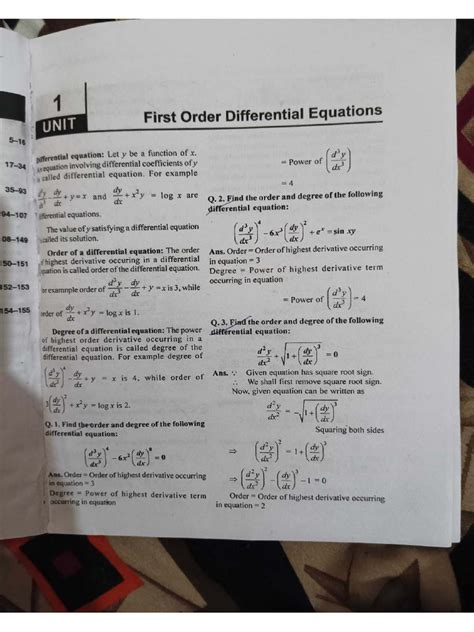 5–16
17–34
35–93
94–107
08–149
150–151
152–153
154–155
1
UNIT
First Order Differential Equations
Differential equation: Let y be a function of x.
equation involving differential coefficients of y
is called differential equation. For example
d³y/dx³ - dy/dx + y = x and dy/dx + x²y = log x are
differential equations.
The value of y satisfying a differential equation
called its solution.
Order of a differential equation: The order
of highest derivative occuring in a differential
equation is called order of the differential equation.
For examople order of d³y/dx³ - dy/dx + y = x is 3, while
order of dy/dx + x²y = log x is 1.
Degree of a differential equation: The power
of highest order derivative occurring in a
differential equation is called degree of the
differential equation. For example degree of
(d³y/dx³)⁴ - dy/dx + y = x is 4, while order of
3(dy/dx)² + x²y = log x is 2.
Q. 1. Find the order and degree of the following
differential equation:
(d³y/dx³)⁴ - 6x²(dy/dx)⁸ = 0
Ans. Order = Order of highest derivative occurring
in equation = 3
Degree = Power of highest derivative term
occurring in equation
= Power of (d³y/dx³)
= 4
Q. 2. Find the order and degree of the following
differential equation:
(d³y/dx³)⁴ - 6x³(dy/dx)² + eˣ = sin xy
Ans. Order = Order of highest derivative occurring
in equation = 3
Degree = Power of highest derivative term
occurring in equation
= Power of (d³y/dx³) = 4
Q. 3. Find the order and degree of the following
differential equation:
d²y/dx² + √(1 + (dy/dx)³) = 0
Ans. ∵ Given equation has square root sign.
∴ We shall first remove square root sign.
Now, given equation can be written as
d²y/dx² = -√(1 + (dy/dx)³)
Squaring both sides
⇒ (d²y/dx²)² = 1 + (dy/dx)³
⇒ (d²y/dx²)² - (dy/dx)³ - 1 = 0
Order = Order of highest derivative occurring
in equation = 2